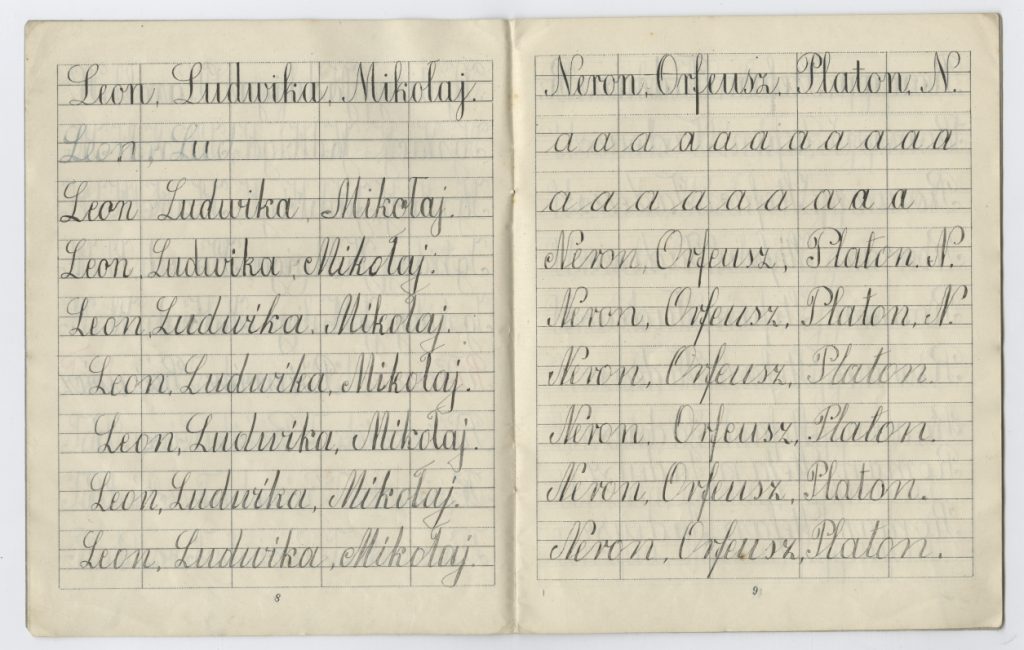 Leon, Ludwika, Mikołaj.
Leon, Lud
Leon Ludwika, Mikołaj.
Leon, Ludwika, Mikołaj.
Leon, Ludwika. Mikołaj.
Leon, Ludwika, Mikołaj.
Leon, Ludwika, Mikołaj.
Leon, Ludwika, Mikołaj.
Leon, Ludwika, Mikołaj.
8
Neron, Orfeusz, Platon, N.
a a a a a a a a a a a a
a a a a a a a a a a
Neron, Orfeusz, Platon. N.
Neron, Orfeusz, Platon, N.
Neron, Orfeusz, Platon.
Neron, Orfeusz, Platon.
Neron, Orfeusz, Platon.
Neron, Orfeusz, Platon.
9